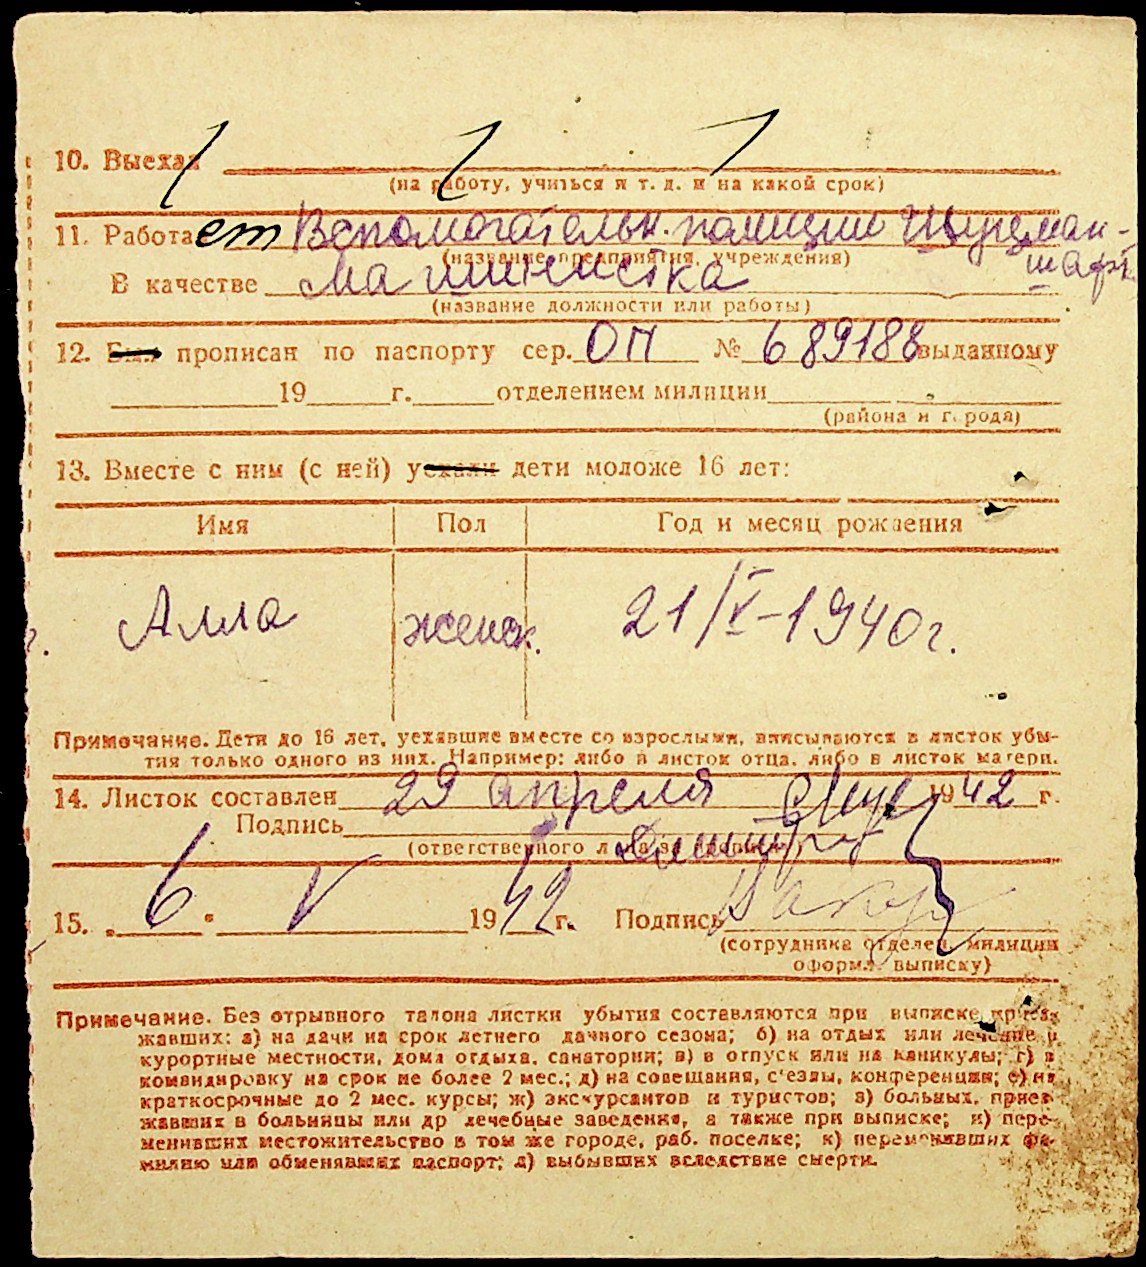 10. Выехал
(на работу, учиться и т. д. и на какой срок)
11. Работает Вспомогательн. полиции Шуцман-
(название предприятия, учреждения)
шафт
В качестве Машинистка
(название должности или работы)
12. Был прописан по паспорту сер. ОП № 689188 выданному
19 г. отделением милиции
(района и города)
13. Вместе с ним (с ней) уехали дети моложе 16 лет:
Имя Пол Год и месяц рождения
г. Алла женск. 21/V-1940г.
Примечание. Дети до 16 лет, уехавшие вместе со взрослыми, вписываются в листок убы-
тия только одного из них. Например: либо в листок отца, либо в листок матери.
14. Листок составлен 29 апреля 1942 г.
Подпись
(ответственного лица за прописку)
15. „6" V 1942 г. Подпись
(сотрудника отделен. милиции
оформл. выписку)
Примечание. Без отрывного талона листки убытия составляются при выписке приез-
жавших: а) на дачи на срок летнего дачного сезона; б) на отдых или лечение в
курортные местности, дома отдыха, санатории; в) в отпуск или на каникулы; г) в
командировку на срок не более 2 мес.; д) на совещания, с'езды, конференции; е) на
краткосрочные до 2 мес. курсы; ж) экскурсантов и туристов; з) больных, приез-
жавших в больницы или др лечебные заведения, а также при выписке; и) пере-
менивших местожительство в том же городе, раб. поселке; к) переменивших фа-
милию или обменявших паспорт; л) выбывших вследствие смерти.